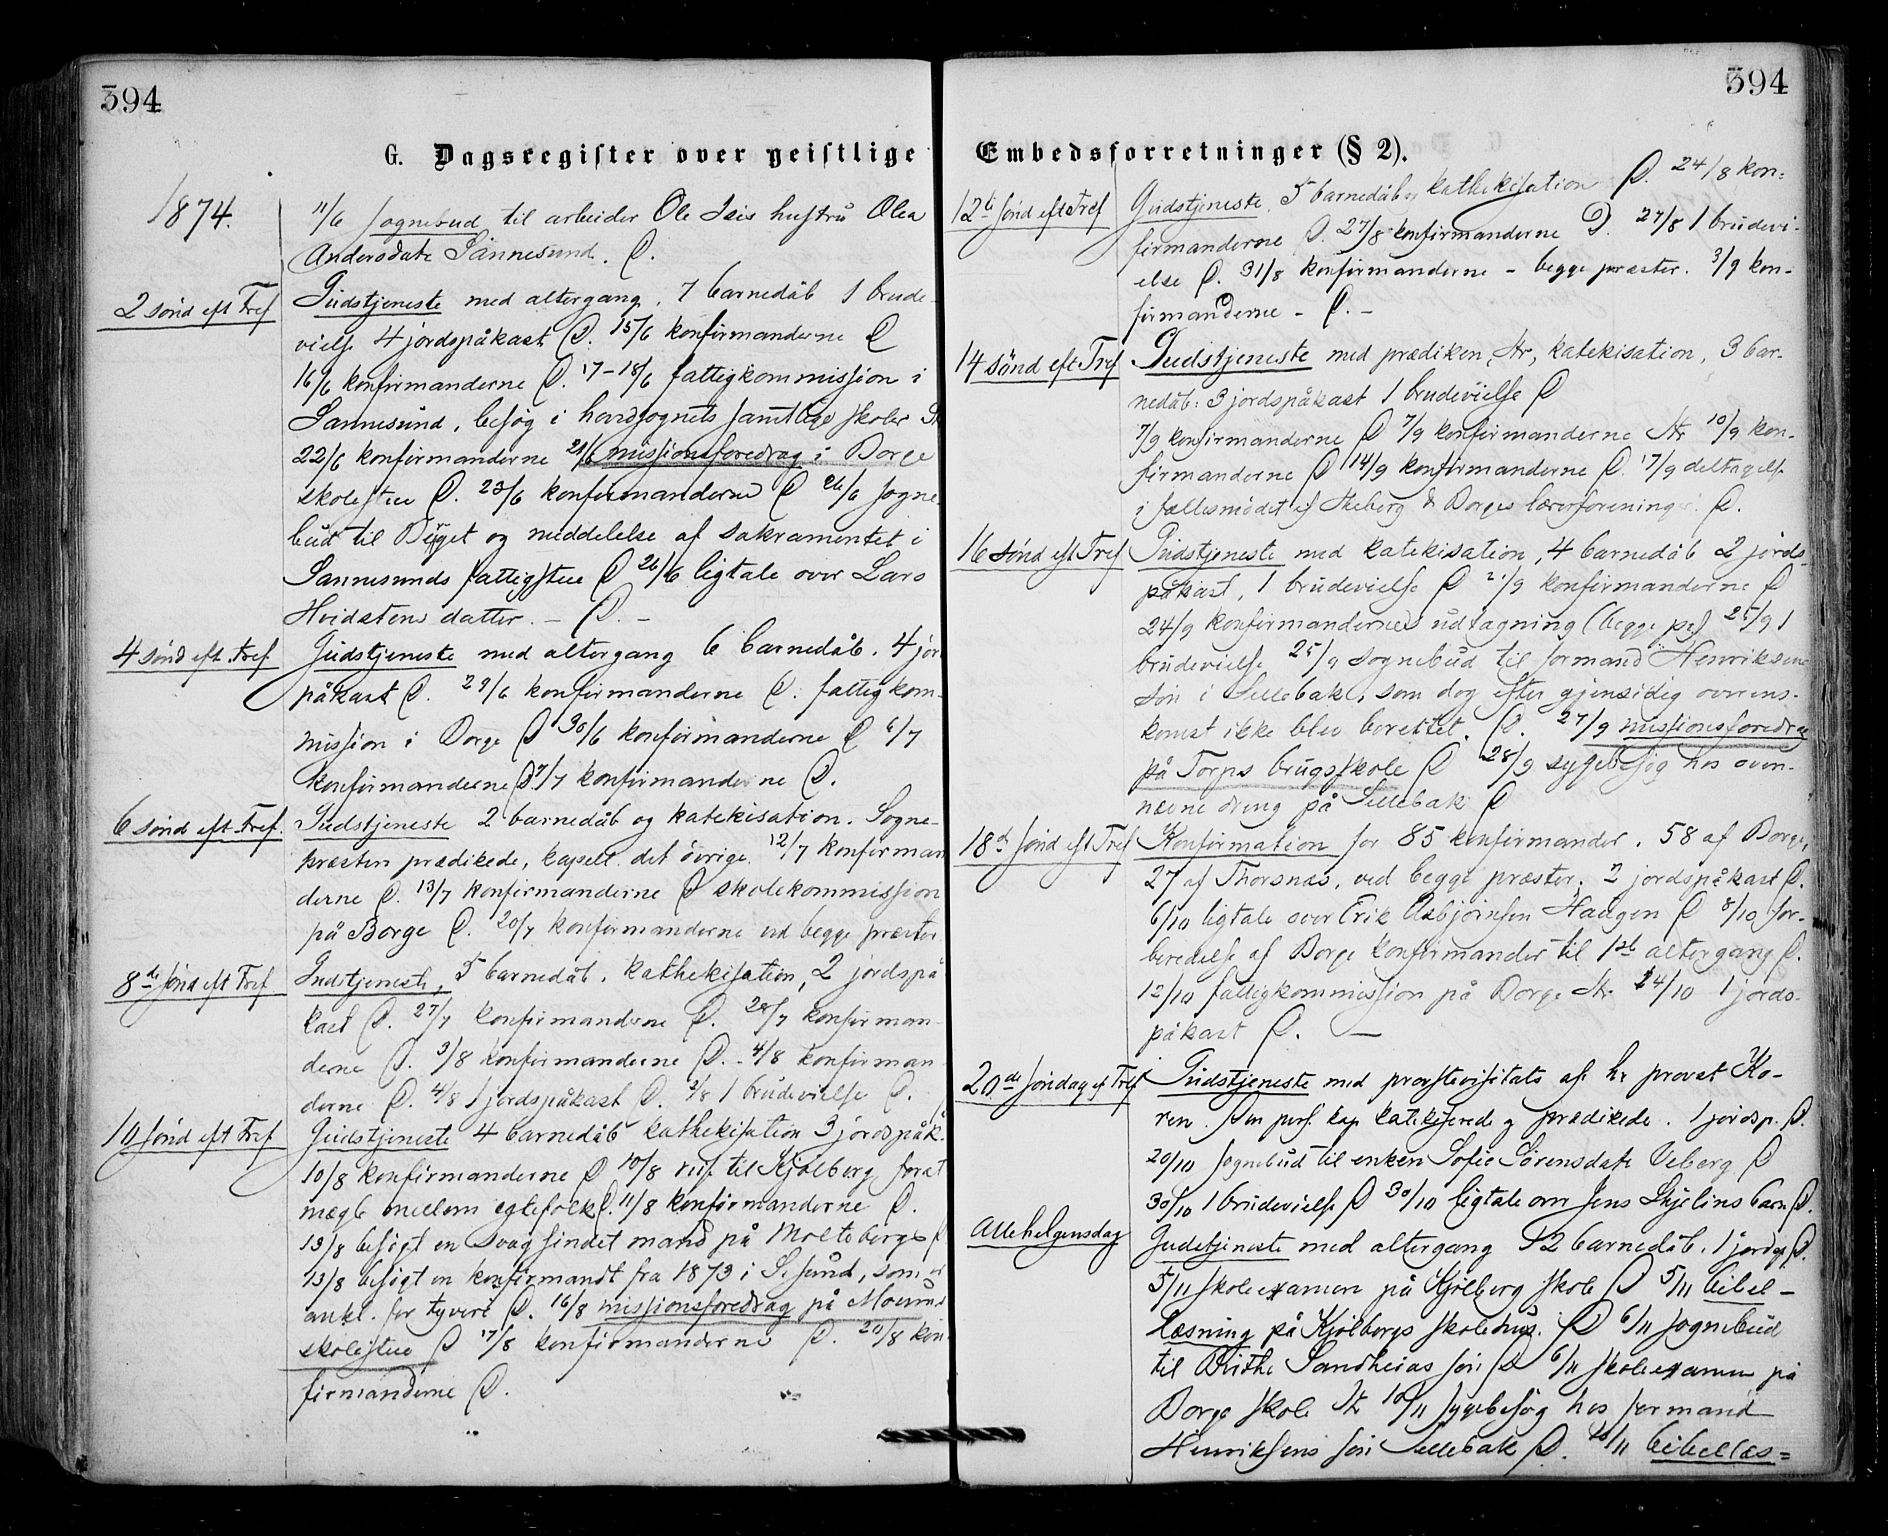 394
G. Dagsregister over geistlige
1874.
11/6 sognebud til arbeider Ole Isis hustru Olea
Andersdatr Sannesund. P.
2 sönd eft Tref
Gudstjeneste med altergang. 7 barnedåb 1 brude-
vielse 4 jordspåkast P. 15/6 konfirmanderne P
16/6 konfirmanderne P. 17-18/6 fattigkommission i
Sannesund, besög i hovedsognets samtlige skoler St
22/6 konfirmanderne 21/6 missionsforedrag i Borge
skolestue P. 23/6 konfirmanderne P 26/6 sogne
bud til og meddelelse af sakramentet i
Sannesunds fattigstue P 26/6 ligtale over Lars
Hvidstens datter. - P. -
4 sönd eft. Tref.
Gudstjeneste med altergang 6 barnedåb. 4 jor
påkast P. 29/6 konfirmanderne P. fattigkom-
mission i Borge P 30/6 konfirmanderne P 6/7
konfirmanderne P 7/7 konfirmanderne P.
6 sönd eft Tref.
Gudstjeneste 2 barnedåb og katekisation. Sogne-
præsten prædikede, kapell. det övrige. 12/7 konfirman
derne P. 13/7 konfirmanderne P skolekommission
på Borge P. 20/7 konfirmanderne ved begge præster
8de sönd eft Tref
Gudstjeneste, 5 barnedåb. kathekisation, 2 jordspå
kast P. 27/7 konfirmanderne P. 28/7 konfirman-
derne P. 3/8 konfirmanderne P. 4/8 konfirman-
derne P. 4/8 1 jordspåkast P. 2/8 1 brudevielse P.
10 sönd eft Tref
Gudstjeneste 4 barnedåb kathekisation 3 jordspåk.
10/8 konfirmanderne P 10/8 til Kjölberg forat
mægle mellem egtefolk P. 11/8 konfirmanderne P.
13/8 besögt en svagsindet mand på Molteberg P
13/8 besögt en konfirmandt fra 1873 i S.sund, som er
ankl. for tyveri P. 16/8 missionsforedrag på Moum
skolestue P 17/8 konfirmanderne P. 20/8 kon-
firmanderne P.
394
Embedsforretninger (§ 2).
12te sönd eft Tref
Gudstjeneste. 5 barnedåb og kathekisation P. 24/8 kon-
firmanderne P. 27/8 konfirmanderne P. 27/8 1 brudevi-
else P. 31/8 konfirmanderne - begge præster. 3/9 kon-
firmanderne - P. -
14 sönd eft Tref
Gudstjeneste med prædiken, Str, katekisation, 3 bar-
nedåb. 3 jordspåkast 1 brudevielse P
7/9 konfirmanderne P 7/9 konfirmanderne Str 10/9 kon-
firmanderne P 14/9 konfirmanderne P. 17/9 deltagelse
i fællesmödet af Skeberg & Borges lærerforeninger P.
16 sönd eft Tref
Gudstjeneste med katekisation, 4 barnedåb 2 jords-
påkast, 1 brudevielse P 21/9 konfirmanderne P
24/9 konfirmandernes udtagning (begge pr) 25/9 1
brudevielse 25/9 sognebud til formand Henriksens
sön i Sellebak, som dog efter gjensidig overens-
komst ikke blev berettet. P. 27/9 missionsforedrag
på Torps brugsskole P 28/9 sygebesög hos oven-
nævne dreng på Sellebak P
18de sönd eft Tref
Konfirmation for 85 konfirmander. 58 af Borge,
27 af Thorsnæs, ved begge præster. 2 jordspåkast P.
6/10 ligtale over Erik Asbjörnsen Haugen P 8/10 for-
beredelse af Borge konfirmander til 1ste altergang P.
12/10 fattigkommission på Borge Str 14/10 1 jords-
påkast P. -
20de söndag ef Tref
Gudstjeneste med provstevisitats af hr provst Ko-
ren. Den pers. kap katekiserede og prædikede. 1 jordsp. P.
20/10 sognebud til enken Sofie Sörensdatr Veberg P
30/10 1 brudevielse P 30/10 ligtale om Jens Skjelins barn P.
Allehelgensdag
Gudstjeneste med altergang P 2 barnedåb. 1 jordsp P.
5/11 skoleexamen på Kjölberg skole P 5/11 bibel-
læsning på Kjölbergs skolehus. P 6/11 sognebud
til Birthe Sandheias sön P 6/11 skoleexamen på
Borge skole Str 10/11 sygebesög hos formand
Henriksens sön Sellebak P. 10/11 bibellæs=